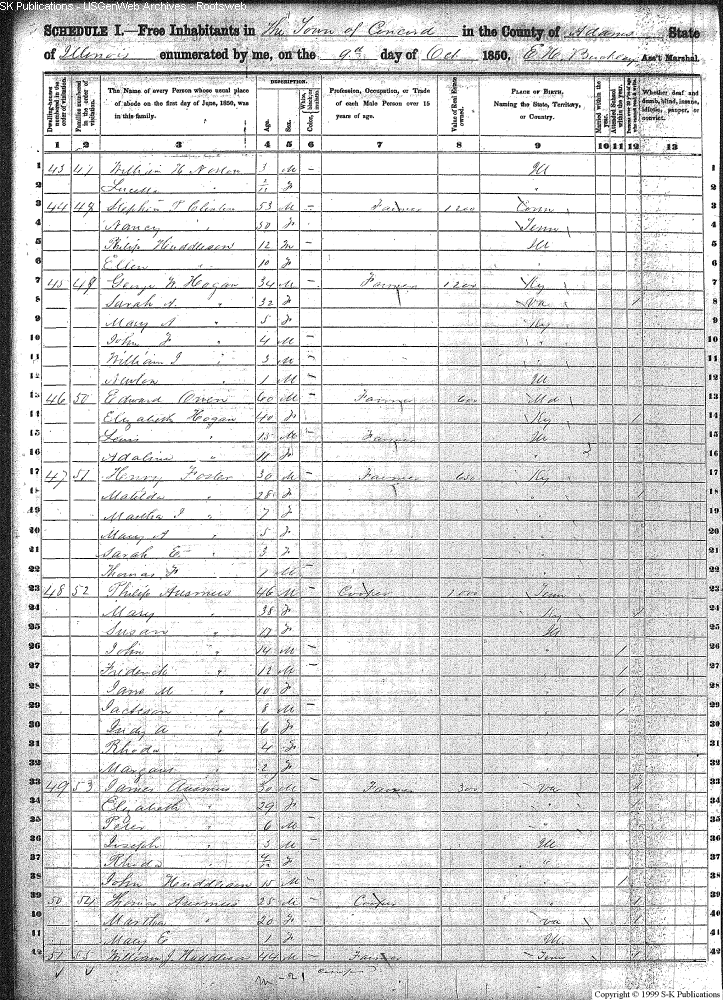 SK Publications - USGenWeb Archives - Rootsweb
SCHEDULE I.—Free Inhabitants in The Town of Concord in the County of Adams State
of Illinois enumerated by me, on the 9th day of Oct 1850. Ass't Marshal.
Dwelling-houses numbered in the order of visitation. Families numbered in the order of visitation. The Name of every Person whose usual place of abode on the first day of June, 1850, was in this family. DESCRIPTION. Age. Sex. Color, White, black, or mulatto. Profession, Occupation, or Trade of each Male Person over 15 years of age. Value of Real Estate owned. PLACE OF BIRTH, Naming the State, Territory, or Country. Married within the year. Attended School within the year. Whether deaf and dumb, blind, insane, idiotic, pauper, or convict.
1 2 3 4 5 6 7 8 9 10 11 12 13
1 43 47 William H 3 M – Ill 1
2 F " 2
3 44 48 Stephen 53 M – Farmer 1200 Conn 3
4 Nancy " 50 F Tenn 4
5 Philip Huddleson 12 M – Ill 5
6 Ellen " 10 F " 6
7 45 49 George W. Hogan 34 M – Farmer 1200 Ky 7
8 Sarah A. " 32 F Va 1 8
9 Mary A " 5 F Ky 9
10 John F " 4 M – " 10
11 William " 3 M – " 11
12 Newton " 1 M – Ill 12
13 46 50 Edward Owen 60 M – Farmer 600 Md 13
14 Elizabeth Hogan 40 F Ky 1 14
15 Lewis " 15 M – Farmer Ill 15
16 Adaline " 11 F " 16
17 47 51 Henry Foster 30 M – Farmer 650 Ky 17
18 Matilda " 28 F " 1 18
19 Martha " 7 F " 19
20 Mary A " 5 F " 20
21 Sarah E " 3 F " 21
22 Thomas F " 1 M – " 22
23 48 52 Philip Ausmus 46 M – Cooper 1000 Tenn 23
24 Mary " 38 F Ky 1 24
25 Susan " 17 F Ill 25
26 John " 14 M – " 1 26
27 Frederick " 12 M – " 1 27
28 Jane M " 10 F " 1 28
29 Jackson " 8 M – " 1 29
30 " 6 F " 30
31 Rhoda " 4 F " 31
32 Margaret " 2 F " 32
33 49 53 James Ausmus 30 M – Farmer 300 Va 1 33
34 Elizabeth " 29 F " 1 34
35 Peter " 6 M – " 35
36 Joseph " 3 M – Ill 36
37 Rhoda " F " 37
38 John Huddleson 15 M – " 1 38
39 50 54 Thomas Ausmus 25 M – Cooper " 1 39
40 Martha " 20 F Va 1 40
41 Mary E " 1 F Ill 41
42 51 55 William J Huddleson 44 M – Farmer Tenn 1 42
Copyright © 1999 S-K Publications